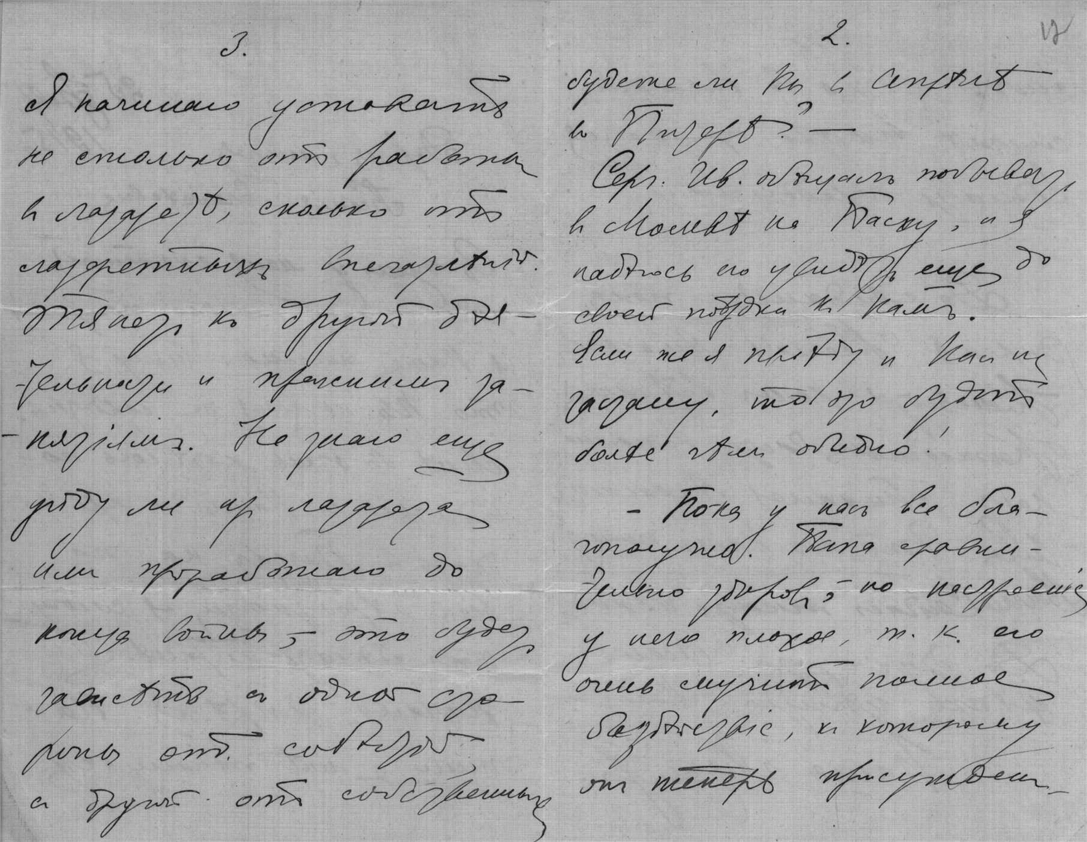 3.
Я начинаю уставать
не столько отъ работы
въ лазаретѣ, сколько отъ
лазаретныхъ впечатлѣній.
Тянетъ къ другой дѣя-
тельности и прежнимъ за-
нятіямъ. Не знаю еще
уйду ли изъ лазарета
или проработаю до
конца войны, – это будетъ
зависѣть съ одной сто-
роны отъ событій,
съ другой отъ собственныхъ
2.
будете ли Вы въ Апрѣлѣ
въ Питерѣ? —
Серг. Ив. обѣщалъ побывать
въ Москвѣ на Пасху, и я
надѣюсь его увидѣть еще до
своей поѣздки къ Вамъ.
Если же я пріѣду и Васъ не
застану, то это будетъ
более чѣмъ обидно!
– Пока у насъ все бла-
гополучно. Папа сравни-
тельно здоровъ, – но настроеніе
у него плохое, т. к. его
очень мучитъ полное
бездѣйствіе, къ которому
онъ теперь присужденъ